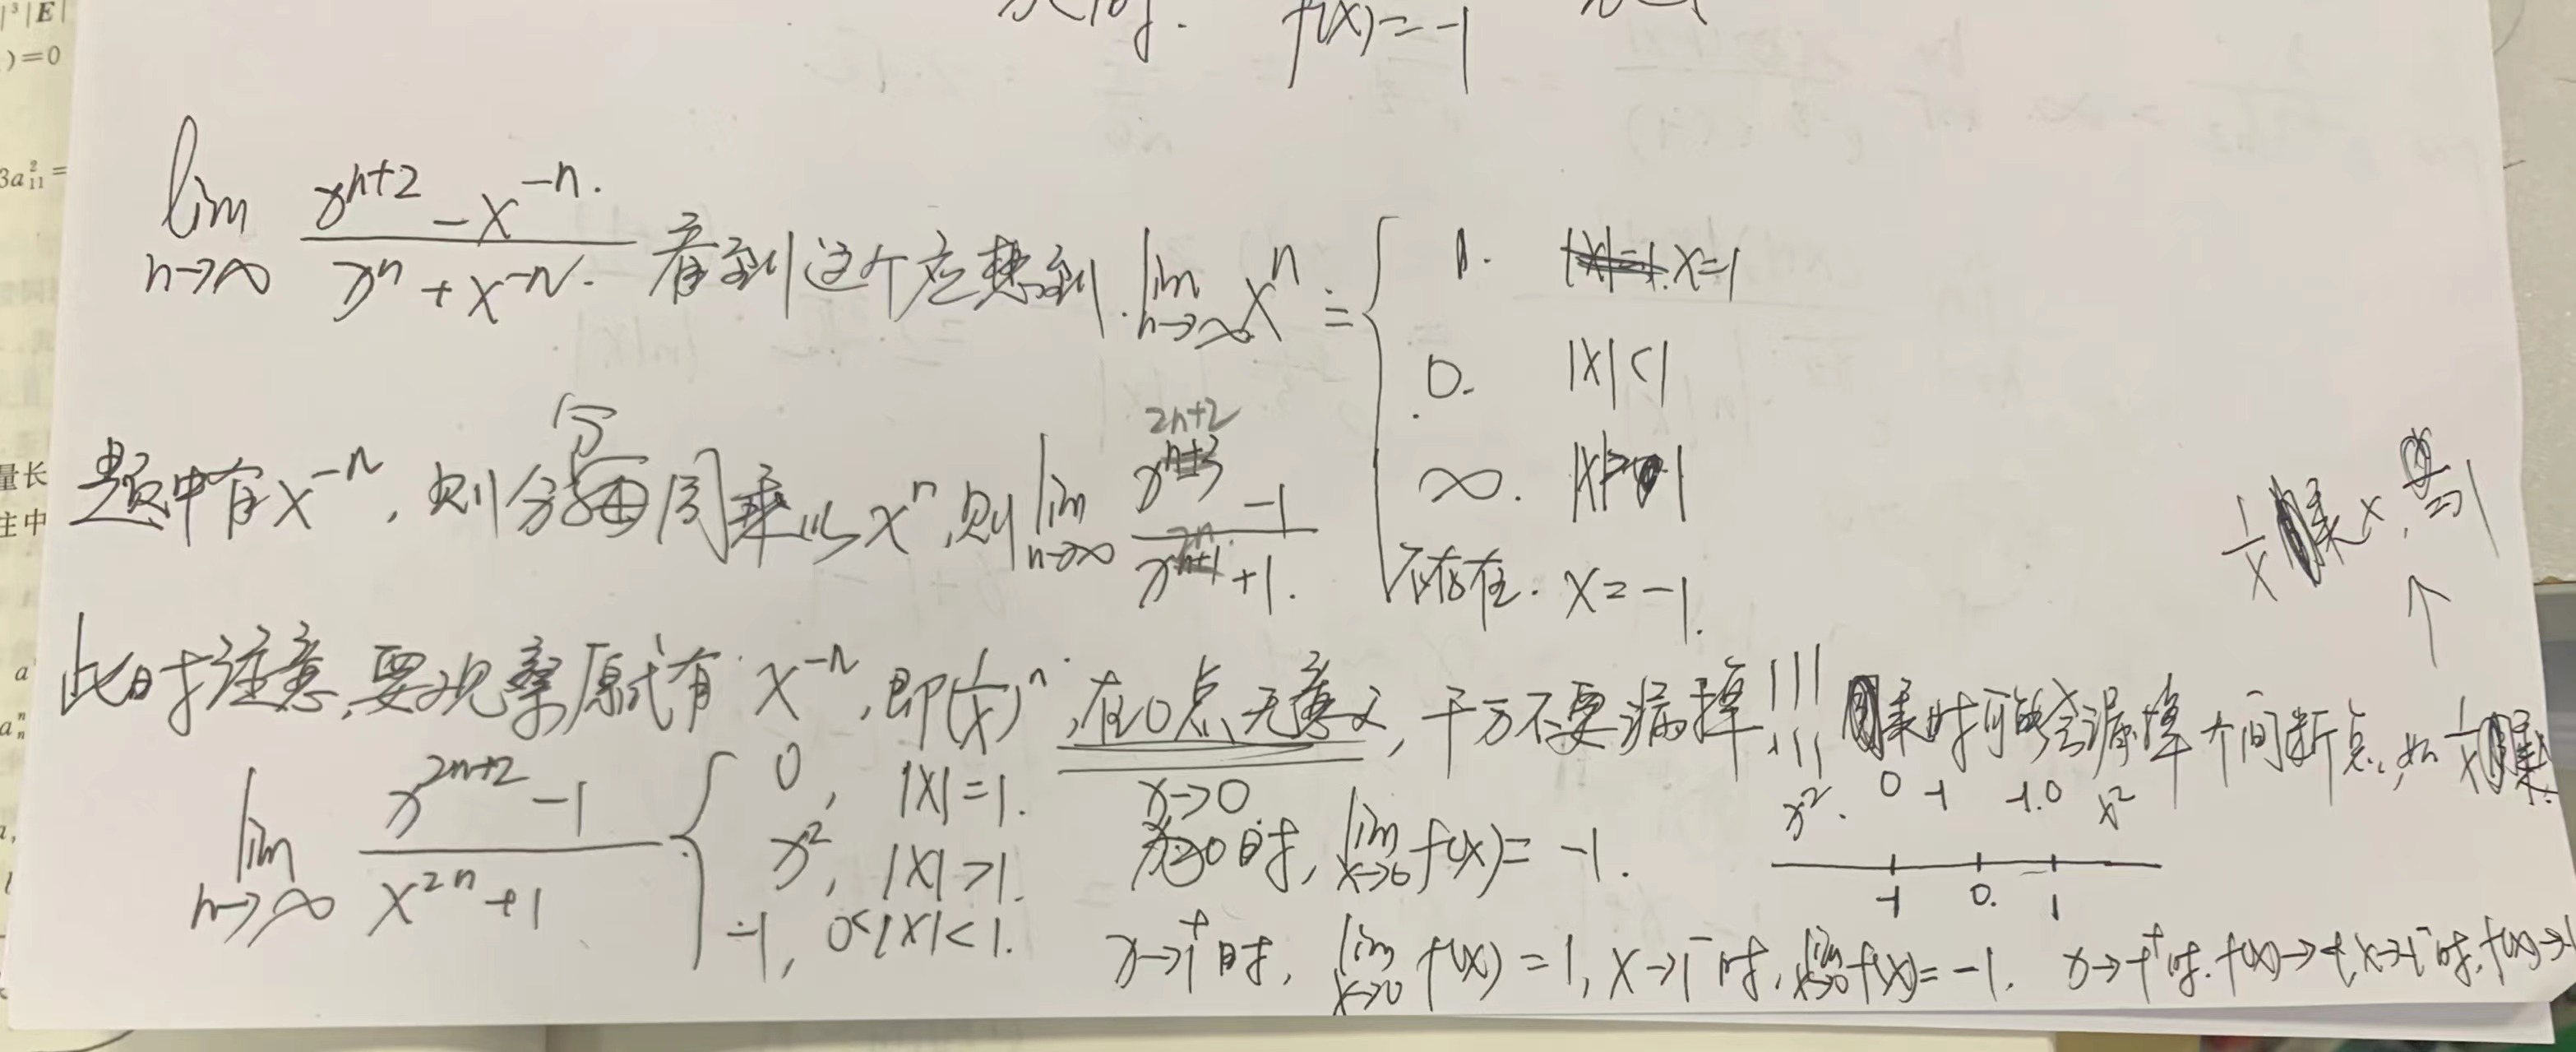 |³|E|
)=0
3a₁₁²=
量长
注中
f(x)=-1
lim n→∞ (x^{n+2} - x^{-n}) / (x^n + x^{-n}) 看到这个应想到 lim n→∞ x^n = { 1. x=1
0. |x|<1
∞. |x|>1
不存在. x=-1.
题中有x^{-n}, 则分子分母同乘以x^n, 则 lim n→∞ (x^{2n+2} - 1) / (x^{2n} + 1).
1/x 乘x, 为1
↑
此时注意,要观察原式有x^{-n},即(1/x)^n,在0点无意义,千万不要漏掉!!! 乘时可能会漏掉个间断点,如1/x乘
lim n→∞ (x^{2n+2} - 1) / (x^{2n} + 1) { 0, |x|=1.
x², |x|>1.
-1, 0<|x|<1.
x→0
时, lim x→0 f(x)=-1.
x². 0 -1 -1.0 x²
-1 0. 1
x→1⁺时, lim x→0 f(x)=1, x→1⁻时, lim x→0 f(x)=-1. x→-1⁺时. f(x)→-1, x→-1⁻时, f(x)→